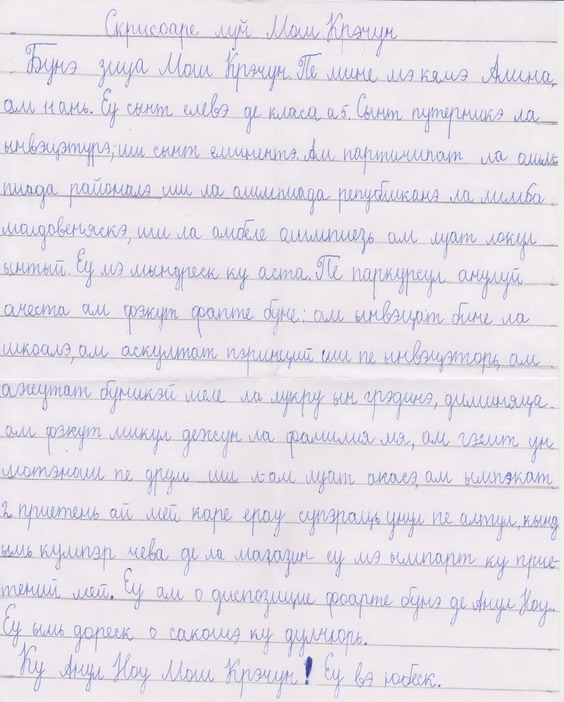 Скрисоаре луй Мош Крэчун
Бунэ зиуа Мош Крэчун. Пе мине мэ кямэ Алина,
ам 11 ань. Еу сынт елевэ де класа а 5. Сынт путерникэ ла
ынвэцэтурэ, ши сынт еминентэ. Ам партичипат ла олим-
пиада районалэ ши ла олимпиада републиканэ ла лимба
молдовеняскэ, ши ла амбеле олимпиезь ам луат локул
ынтый. Еу мэ мындреск ку аста. Пе паркурсул анулуй
ачеста ам фэкут фапте буне: ам ынвэцат бине ла
шкоалэ, ам аскултат пэринций ши пе ынвэцэторь, ам
ажутат буникэй меле ла лукру ын грэдинэ, диминяца
ам фэкут микул дежун ла фамилия мя, ам гэсит ун
мотэнаш пе друм ши л-ам луат акасэ, ам ымпэкат
2 приетень ай мей каре ерау супэраць унул пе алтул, кынд
ымь кумпэр чева де ла магазин еу мэ ымпарт ку прие-
тений мей. Еу ам о диспозицие фоарте бунэ де Анул Ноу.
Еу ымь дореск о сакошэ ку дулчюрь.
Ку Анул Ноу Мош Крэчун! Еу вэ юбеск.